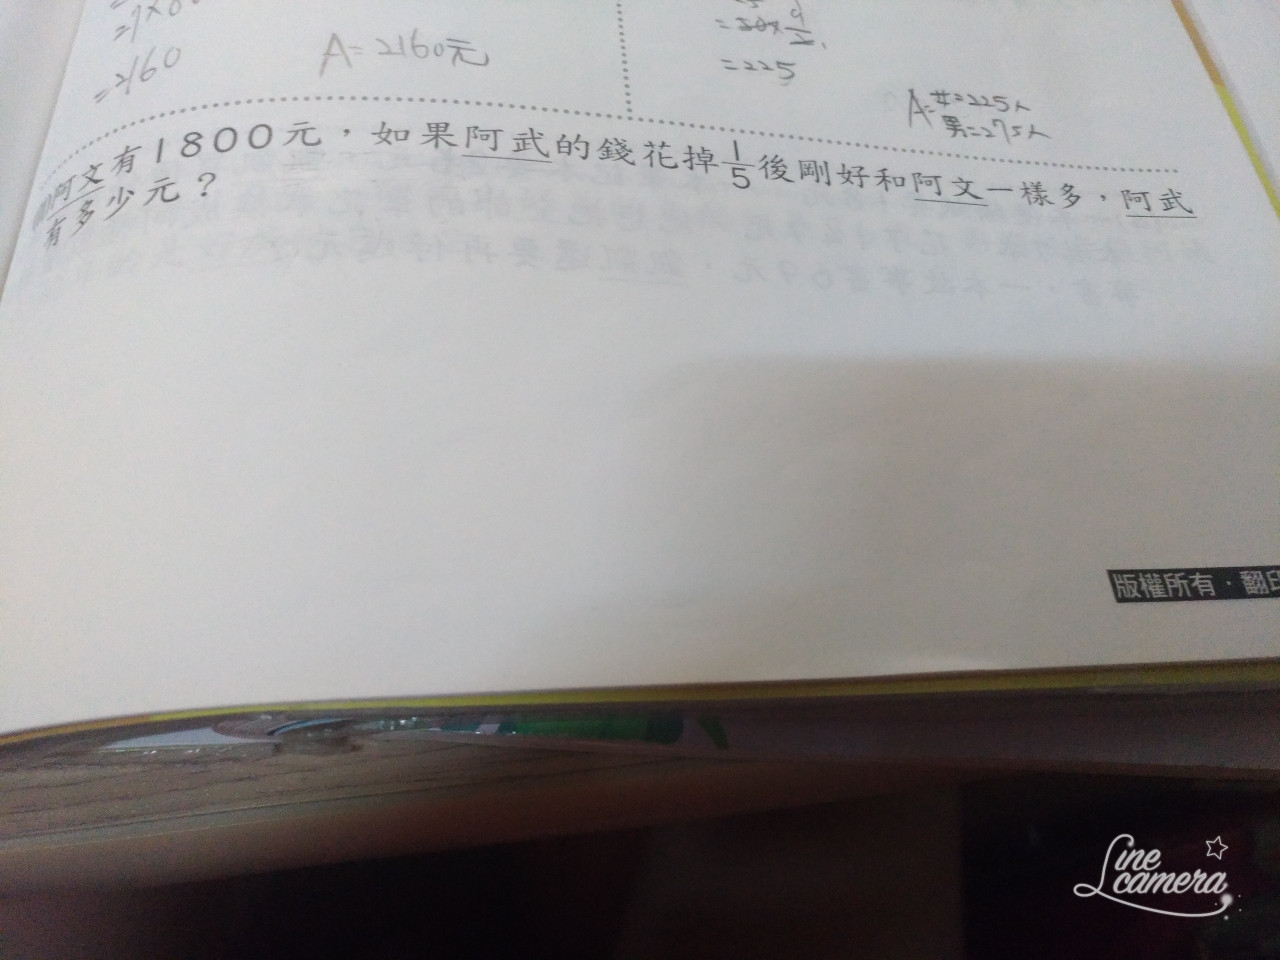 =2160
A=2160元
=225
A=女=225人
男=275人
阿文有1800元，如果阿武的錢花掉1/5後剛好和阿文一樣多，阿武
有多少元？
版權所有·翻印
Line camera